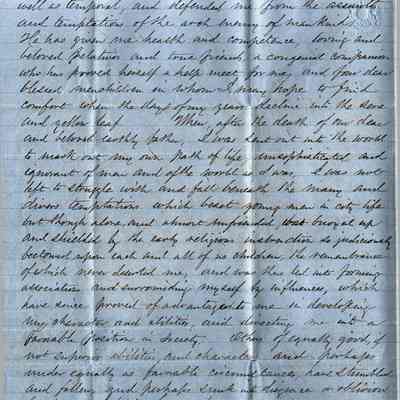 well as temporal, and defended me from the assaults
and temptations of the arch enemy of mankind.
He has given me health and competence, loving and
beloved Relatives and true friends, a congenial companion
who has proved herself a help meet for me, and four dear
blessed in whom I may hope to find
comfort when the days of my years decline into the sere
and yellow leaf. When, after the death of our dear
and beloved earthly father, I was sent out into the world
to mark out my own path of life, unsophisticated and
ignorant of man and of the world as I was, I was not
left to struggle with and fall beneath the many and
divers temptations which beset young men in city life
but though alone and almost unfriended, was buoyed up
and shielded by the early religious instruction so judiciously
bestowed upon each and all of us children, the remembrance
of which never deserted me, and was thus led into forming
associations and surrounding myself by influences, which
have since proved of advantage to me in developing
my character and abilities, and directing me into a
favorable position in Society. Others of equally good, if
not superior abilities and character and perhaps
under equally as favorable circumstances, have stumbled
and fallen, and perhaps sunk into disgrace or oblivion